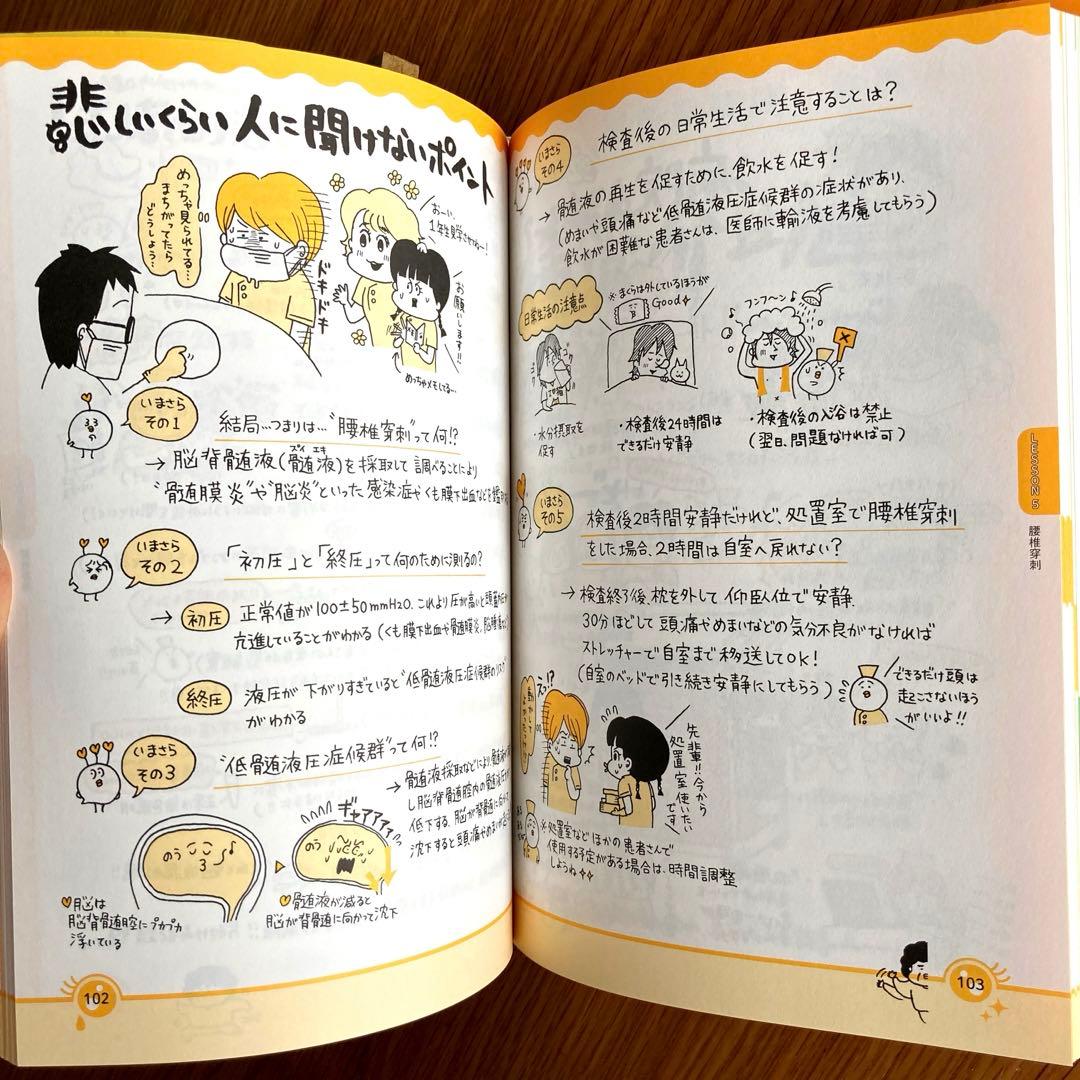 悲しいくらい人に聞けないポイント
めっちゃ見られてる…
まちがってたら
どうしよう…
ドキドキ
おーい、
1年生見学させてねー!
お願いします!!
めっちゃメモしてる…
いまさら
その1
結局…つまりは…“腰椎穿刺”って何!?
→脳脊髄液(髄液)を採取して調べることにより
ズイ エキ
“髄膜炎”や“脳炎”といった感染症やくも膜下出血などを
いまさら
その2
「初圧」と「終圧」って何のために測るの?
→初圧 正常値が100±50mmH2O.これより圧が高いと頭蓋内圧が
亢進していることがわかる(くも膜下出血や髄膜炎、脳腫瘍など
終圧 液圧が下がりすぎていると“低髄液圧症候群のリスク
がわかる
いまさら
その3
“低髄液圧症候群”って何!?
→髄液採取などにより、髄液が
し脳脊髄腔内の髄液圧が
低下する.脳が脊髄に向かって
沈下すると頭痛やめまいが
のう
ギャアアアァァ
のう
脳は
脳脊髄腔にプカプカ
浮いている
髄液が減ると
脳が脊髄に向かって沈下
102
いまさら
その4
検査後の日常生活で注意することは?
→髄液の再生を促すために、飲水を促す!
(めまいや頭痛など低髄液圧症候群の症状があり、
飲水が困難な患者さんは、医師に輸液を考慮してもらう)
日常生活の注意点
※まくらは外しているほうが
Good
フンフ〜ン♪
ゴクゴク
・水分摂取を
促す
・検査後24時間は
できるだけ安静
・検査後の入浴は禁止
(翌日、問題なければ可)
いまさら
その5
検査後2時間安静だけれど、処置室で腰椎穿刺
をした場合、2時間は自室へ戻れない?
→検査終了後、枕を外して仰臥位で安静.
30分ほどして頭痛やめまいなどの気分不良がなければ
ストレッチャーで自室まで移送してOK!
(自室のベッドで引き続き安静にしてもらう)
できるだけ頭は
起こさないほう
がいいよ!!
えっ!?
動かして
よかったっけ?
先輩!!今から
処置室使いたい
です
※処置室などほかの患者さんで
使用する予定がある場合は、時間調整
しようね
LESSON 5
腰椎穿刺
103